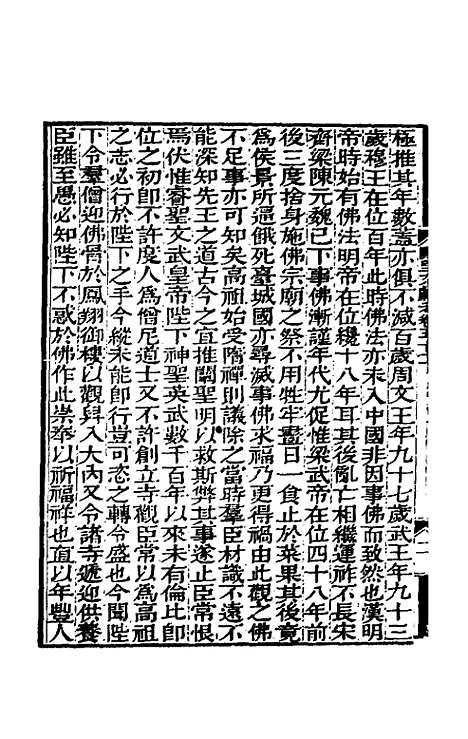 極推其年數蓋亦俱不減百歲周文王年九十七歲武王年九十三
歲穆王在位百年此時佛法亦未入中國非因事佛而致然也漢明
帝時始有佛法明帝在位纔十八年耳其後亂亡相繼運祚不長宋
齊梁陳元魏已下事佛漸謹年代尤促惟梁武帝在位四十八年前
後三度捨身施佛宗廟之祭不用牲牢晝日一食止於菜果其後竟
爲侯景所逼餓死臺城國亦尋滅事佛求福乃更得禍由此觀之佛
不足事亦可知矣高祖始受隋禪則議除之當時羣臣材識不遠不
能深知先王之道古今之宜推闡聖明以救斯弊其事遂止臣常恨
焉伏惟睿聖文武皇帝陛下神聖英武數千百年以來未有倫比卽
位之初卽不許度人爲僧尼道士又不許創立寺觀臣常以爲高祖
之志必行於陛下之手今縱未能卽行豈可恣之轉令盛也今聞陛
下令羣僧迎佛骨於鳳翔御樓以觀舁入大內又令諸寺遞迎供養
臣雖至愚必知陛下不惑於佛作此崇奉以祈福祥也直以年豐人